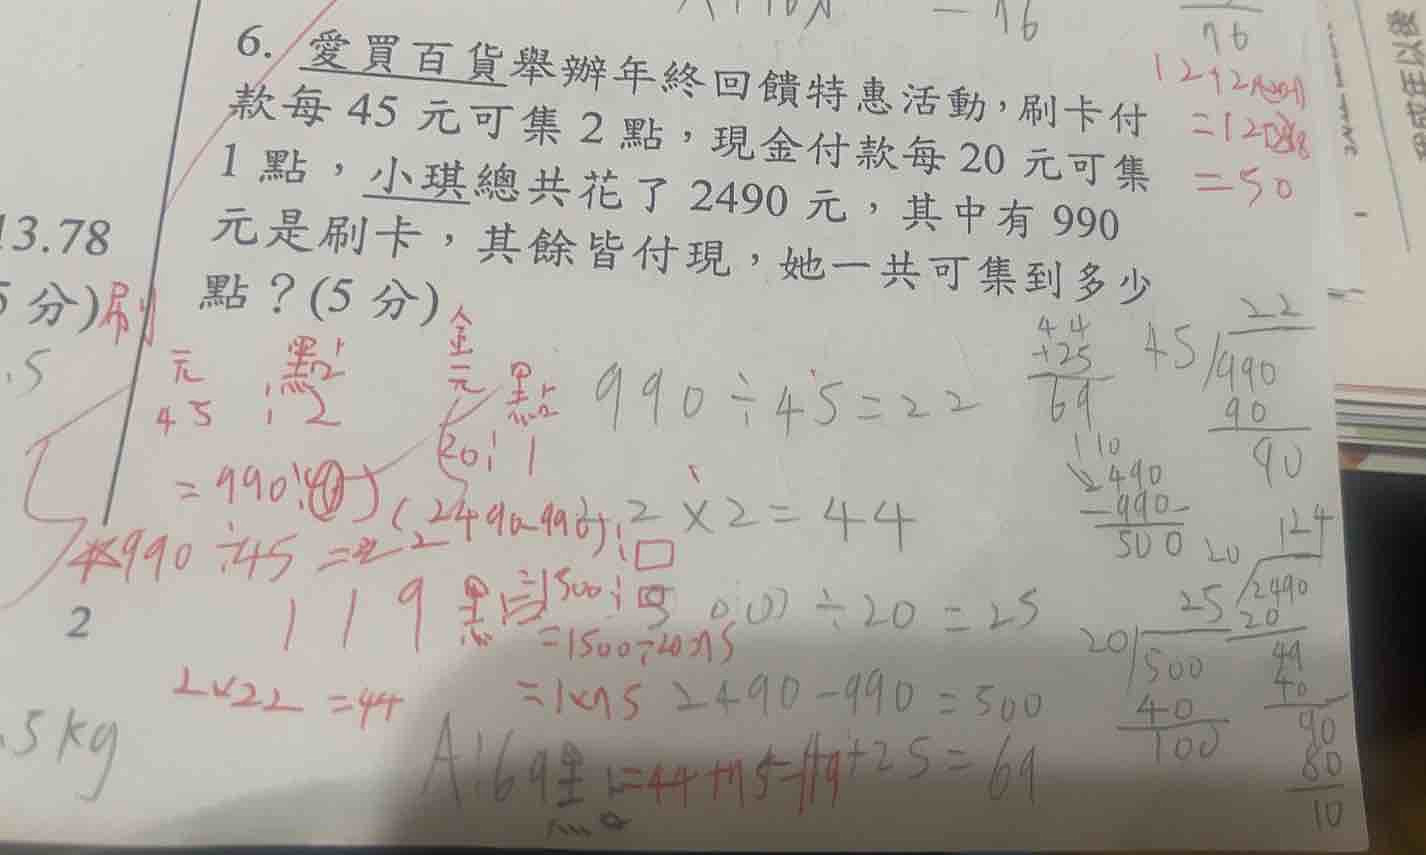 6. 愛買百貨舉辦年終回饋特惠活動，刷卡付
款每 45 元可集 2 點，現金付款每 20 元可集
1 點，小琪總共花了 2490 元，其中有 990
元是刷卡，其餘皆付現，她一共可集到多少
點？(5 分)
13.78
5 分)
刷
.5
2
.5kg
76
76
=50
元 點
45 : 2
金
元 點
20 : 1
=990:
(2490-990):□
990÷45=22
=1500:□
119 點
=1500÷20=75
2×22=44
=1×75
=44+75=119
990÷45=22
2×2=44
500÷20=25
2490-990=500
+25=69
A:69點
44
+25
69
2490
-990
500
22
45)990
90
90
25
20)500
40
100
124
20)2490
20
49
40
90
80
10